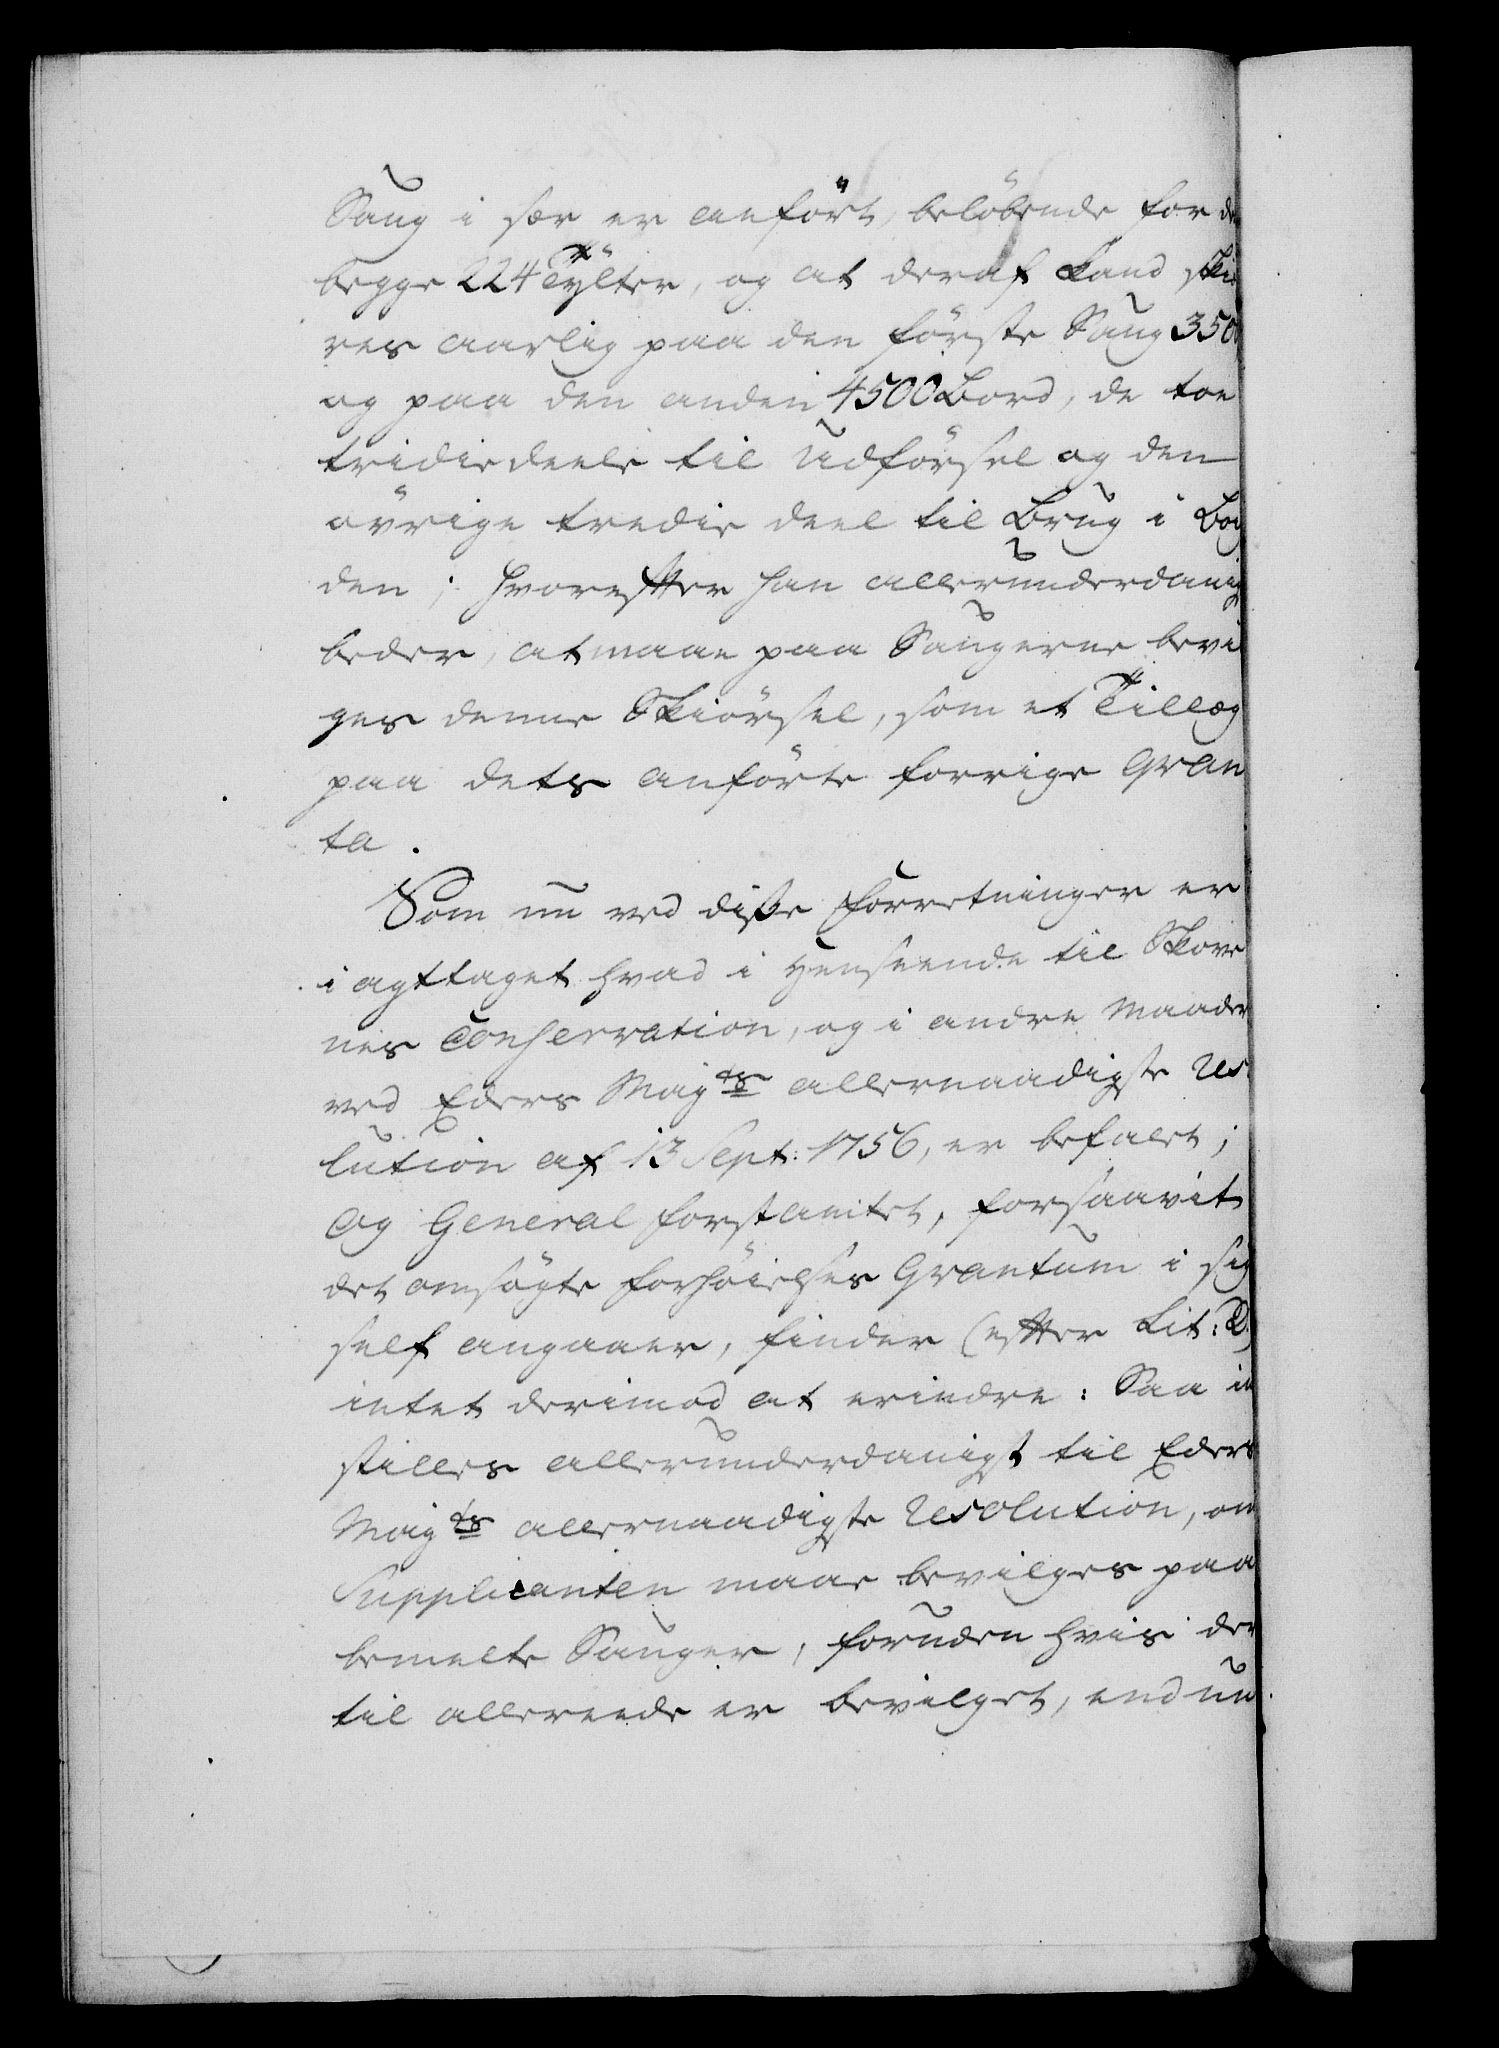 Saug i sær er anført, beløbende for de
begge 224 Tÿlter, og at deraf kand skiæ
res aarlig paa den første Saug 350
og paa den anden 4500 Bord, de toe
tridiedeele til Udførsel og den
øvrige tredie deel til Brug i Boÿ
den; hvorefter han allerunderdanig
beder, at maae paa Saugerne bevi
ges denne Skiørsel, som et Tillæg
paa dets anførte forrige Qvan
ta.
Som nu ved disse Forretninger er
i agttaget hvad i Henseende til Skove
nes Conservation, og i andre Maader
ved Eders Maÿts allernaadigste Reso
lution af 13 Sept: 1756, er befalet;
og General Forstamtet, forsaavit
det omsøgte forhøielses Qvantum i sig
self angaaer, finder (efter Lit: D.)
intet derimod at erindre: Saa in
stilles allerunderdanigst til Eders
Maÿts allernaadigste Resolution, om
Supplicanten maae bevilges paa
bemelte Sauger, foruden hvis der
til allereede er bevilget, end nu